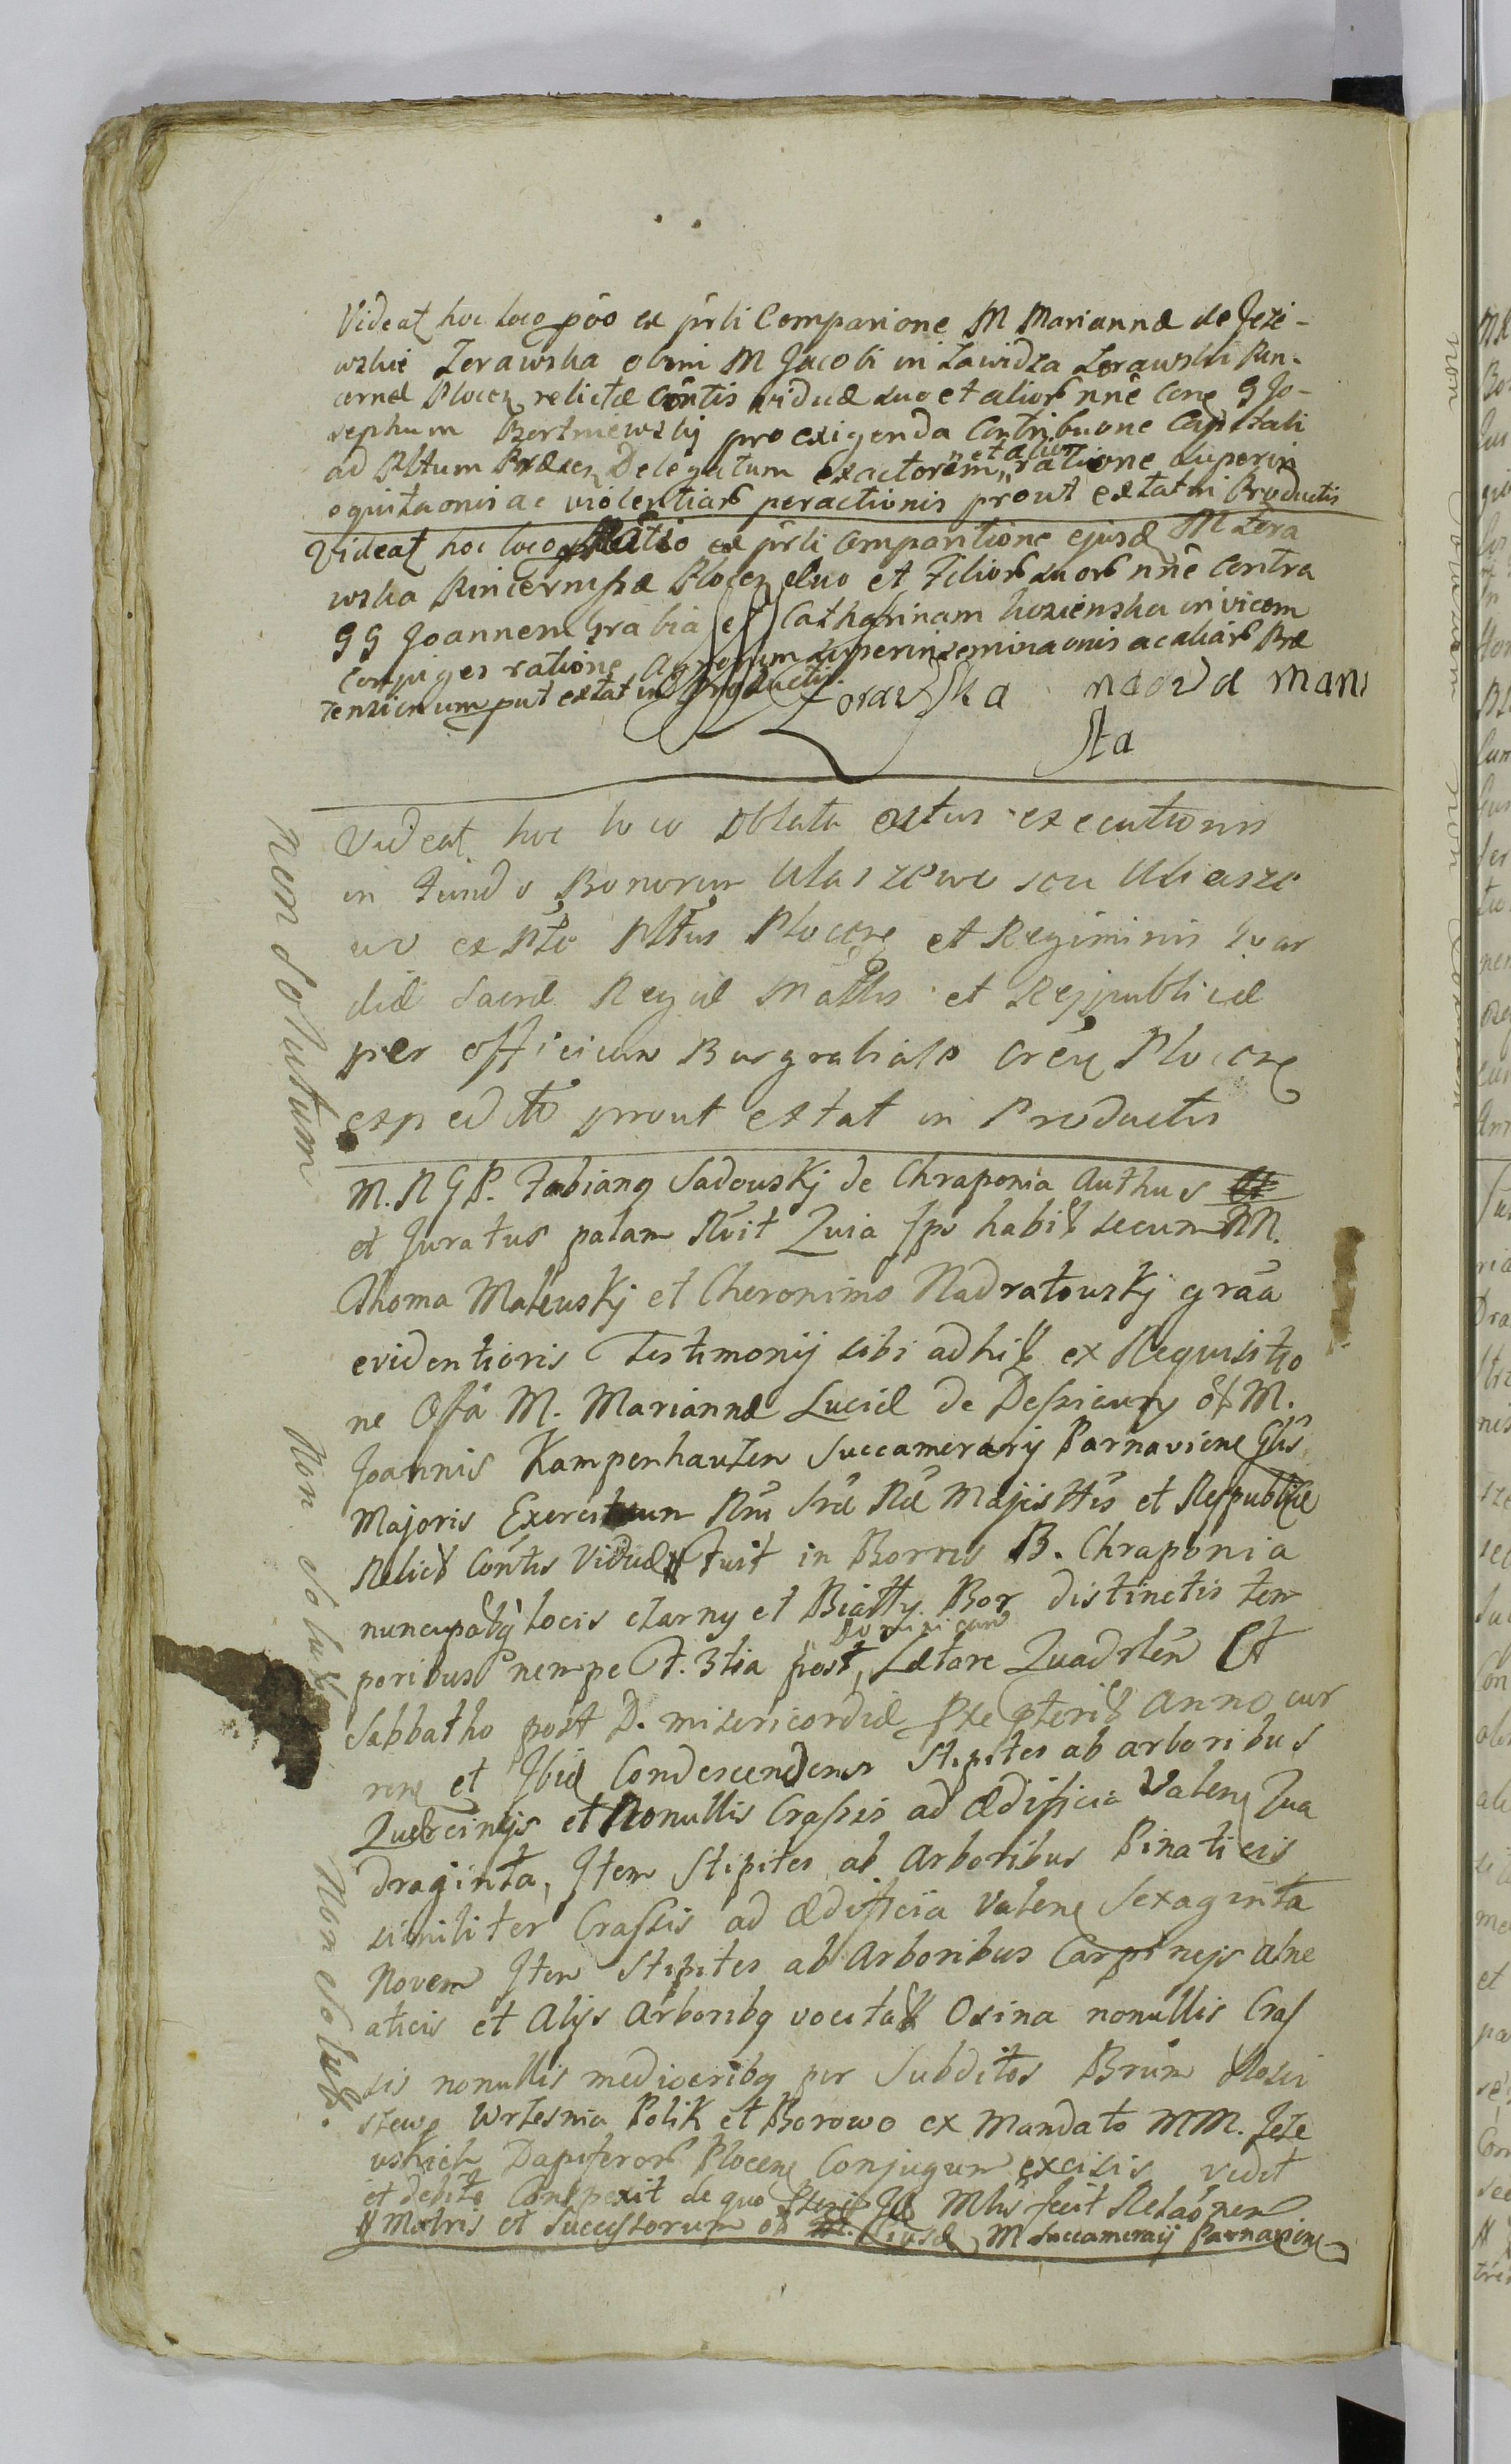 Videat hoc loco põo ex prli Comparione M Mariannæ de Jeze-
wskie Zorawska olim M Jacobi in Zawidza Zorawski Pin-
cernæ Plocen relictæ Contis viduæ suo et alior nne cone G Jo-
sephum Bortniewskj pro exigenda Contribuone Capitali
ad Pltum Præsen Delegatum exactorem, ratione superin
et alior
oquitaonis ac violentiar peractionis prout extat in Productis
Videat hoc loco ex prli Comparitione ejusd M Zora
wska Pincernissæ Plocen suo et Filior suor nne Contra
GG Joannem Grabia et Catharinam invicem
Conjuges ratione Agrorum superinseminaonis ac aliar Præ
tensionum put extat in Productis
Zorawska
sta
Videat hoc loco Oblata actus executionis
in Fundo Bonorum Ulaszewo seu Uliasze
wo ex Pto Pltus Plocen et Regiminis Gvar
diæ Sacræ Regiæ Mattis et Reipublicæ
per officium Burgrabiale Cren Plocen
expedito prout extat in Productis
non Solutum
M. N G P. Fabiang Sadowskj de Chraponia Authus
et Juratus palam Rvit Quia Ipe habit secum NN.
Thoma Malewskj et Cheronimo Nadratowskj graa
evidentioris Testimonij sibi adhib ex Requisitio
ne Offa M. Mariannæ Luciæ de ol M.
Joannis Kampenhauzen Succamerarij Parnaviene Glis
Majoris Exercituum Rni Sræ Ræ Majisttis et Reipublicæ
Relict Contis Viduæ # Fuit in Bonis B. Chraponia
nuncupatq locis czarny et Biatty Bor distinctis tem
poribus nempe F. 3tia post, Lætare Quadrlen Et
Dominicam
Sabbatho post D. misericordiæ Pxe pterit anno cur
ren et Ibid Condescendens Stipites ab arboribus
Quercinejs et Nonullis Crassis ad ædificia Valen Qua
draginta, Item Stipites ab Arboribus Pinaticis
similiter Crassis ad ædificia Valene Sexaginta
Novem Item Stipites ab Arboribus Carpinejs alne
aticis et Alijs Arboribq vocitatt Osina nonullis Cras
sis nonullis mediocribq per Subditos Brum
stewo Wrzesnia Polik et Borowo ex Mandato MM. Jeze
wskich Dapiferor Plocene Conjugum excisis vidit
et debite Conspexit de quo Pteris Id Mlis fecit Relaonem
# Matris et Successorum ol Ejusd M Succameraij Parnaviene
Non Solut
Non Solut.